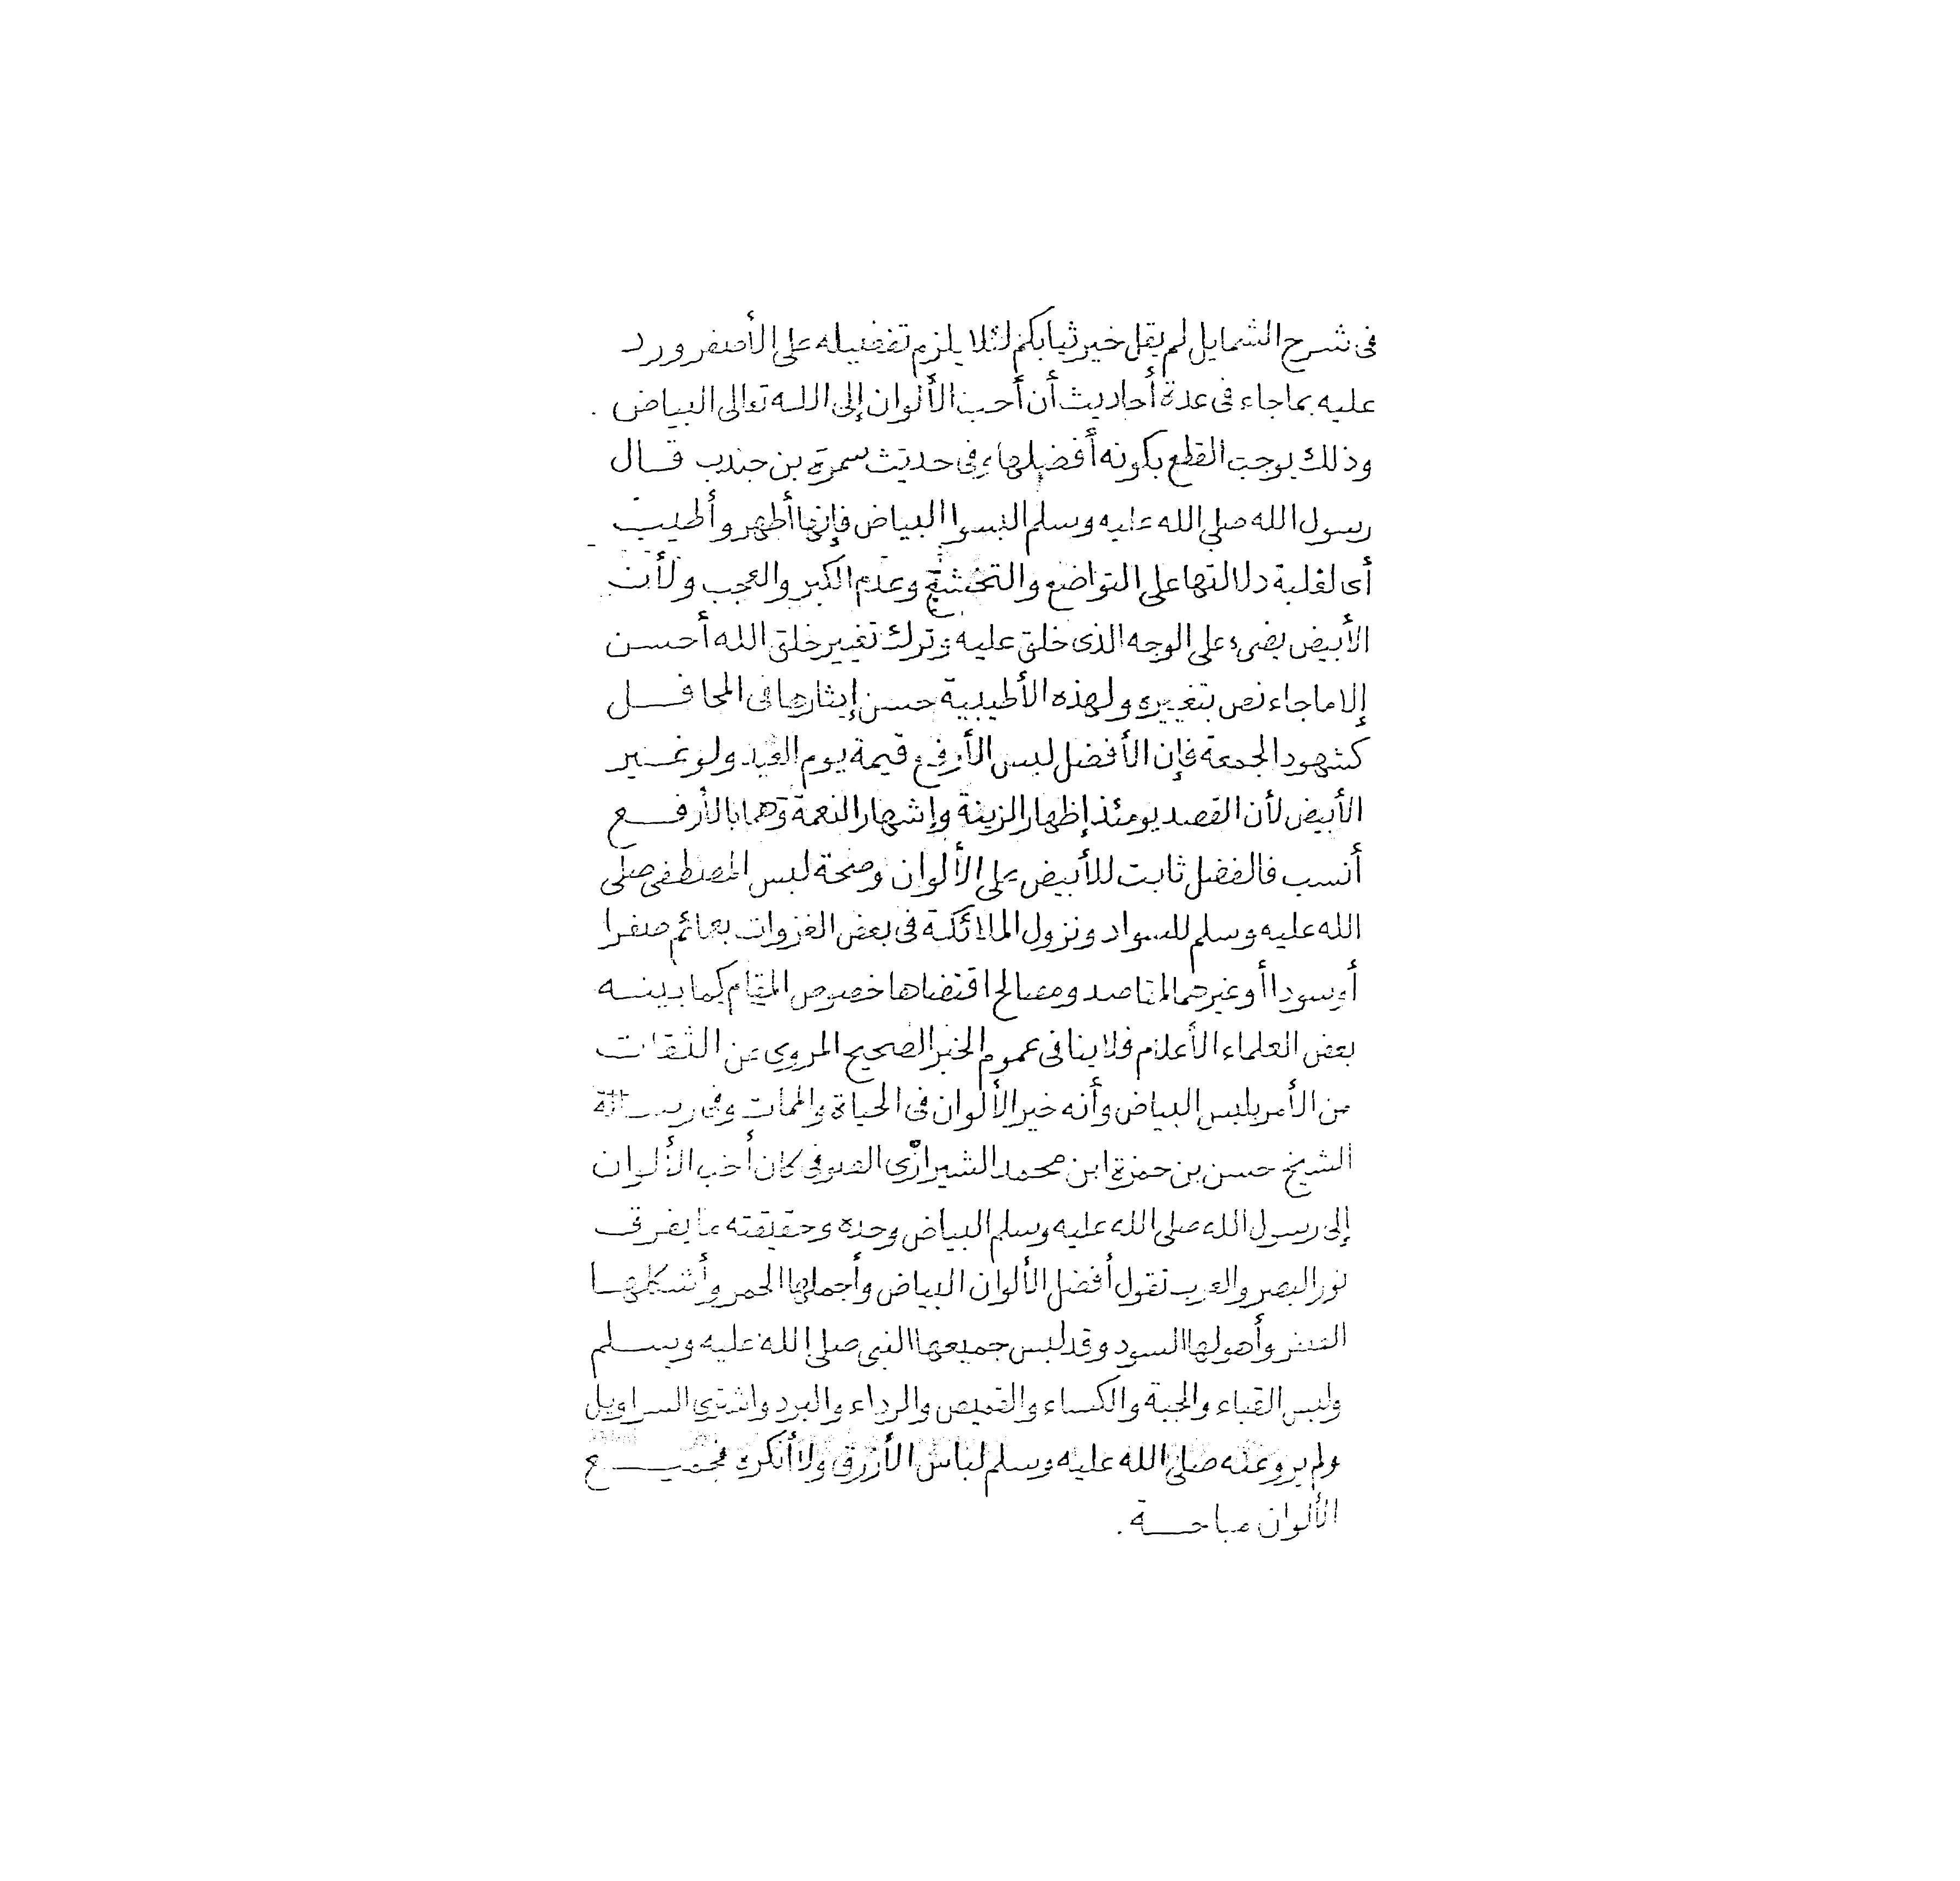 فى شرح الشمايل لم يقل خير ثيابكم لئلا يلزم تفضيله على الأصفر ورد
عليه بما جاء فى عدة أحاديث أن أحب الألوان إلى الله تعالى البياض .
وذلك يوجب القطع بكونه أفضلها وفى حديث سمرة بن جندب قال
رسول الله صلى الله عليه وسلم البسوا البياض فإنها أطهر وأطيب
أى لغلبة دلالتها على التواضع والتخشع وعدم الكبر والعجب ولأن
الأبيض يضىء على الوجه الذى خلق عليه وترك تغيير خلق الله أحسن
إلا ما جاء نص بتغييره ولهذه الأطيبية حسن إيثارها فى المحافل
كشهود الجمعة فإن الأفضل لبس الأرفع قيمة يوم العيد ولو غير
الأبيض لأن القصد يومئذ إظهار الزينة وإشهار النعمة وهما بالأرفع
أنسب فالفضل ثابت للأبيض على الألوان وصحة لبس المصطفى صلى
الله عليه وسلم للسواد ونزول الملائكة فى بعض الغزوات بعمائم صفرا
أو سودا أو غيرهما لمقاصد ومصالح اقتضاها خصوص المقام كما بينه
بعض العلماء الأعلام فلا ينافى عموم الخبر الصحيح المروى عن الثقات
من الأمر بلبس البياض وأنه خير الألوان فى الحياة والممات وفى رسالة
الشيخ حسن بن حمزة ابن محمد الشيرازى الصوفى كان أحب الألوان
إلى رسول الله صلى الله عليه وسلم البياض وحده وحقيقته ما يفرق
نور البصر والعرب تقول أفضل الألوان البياض وأجملها الحمر وأشكلها
الصفر وأهولها السود وقد لبس جميعها النبى صلى الله عليه وسلم
ولبس القباء والجبة والكساء والقميص والرداء والبرد واشترى السراويل
ولم يرو عنه صلى الله عليه وسلم لباس الأزرق ولا أنكره فجميع
الألوان مباحة .